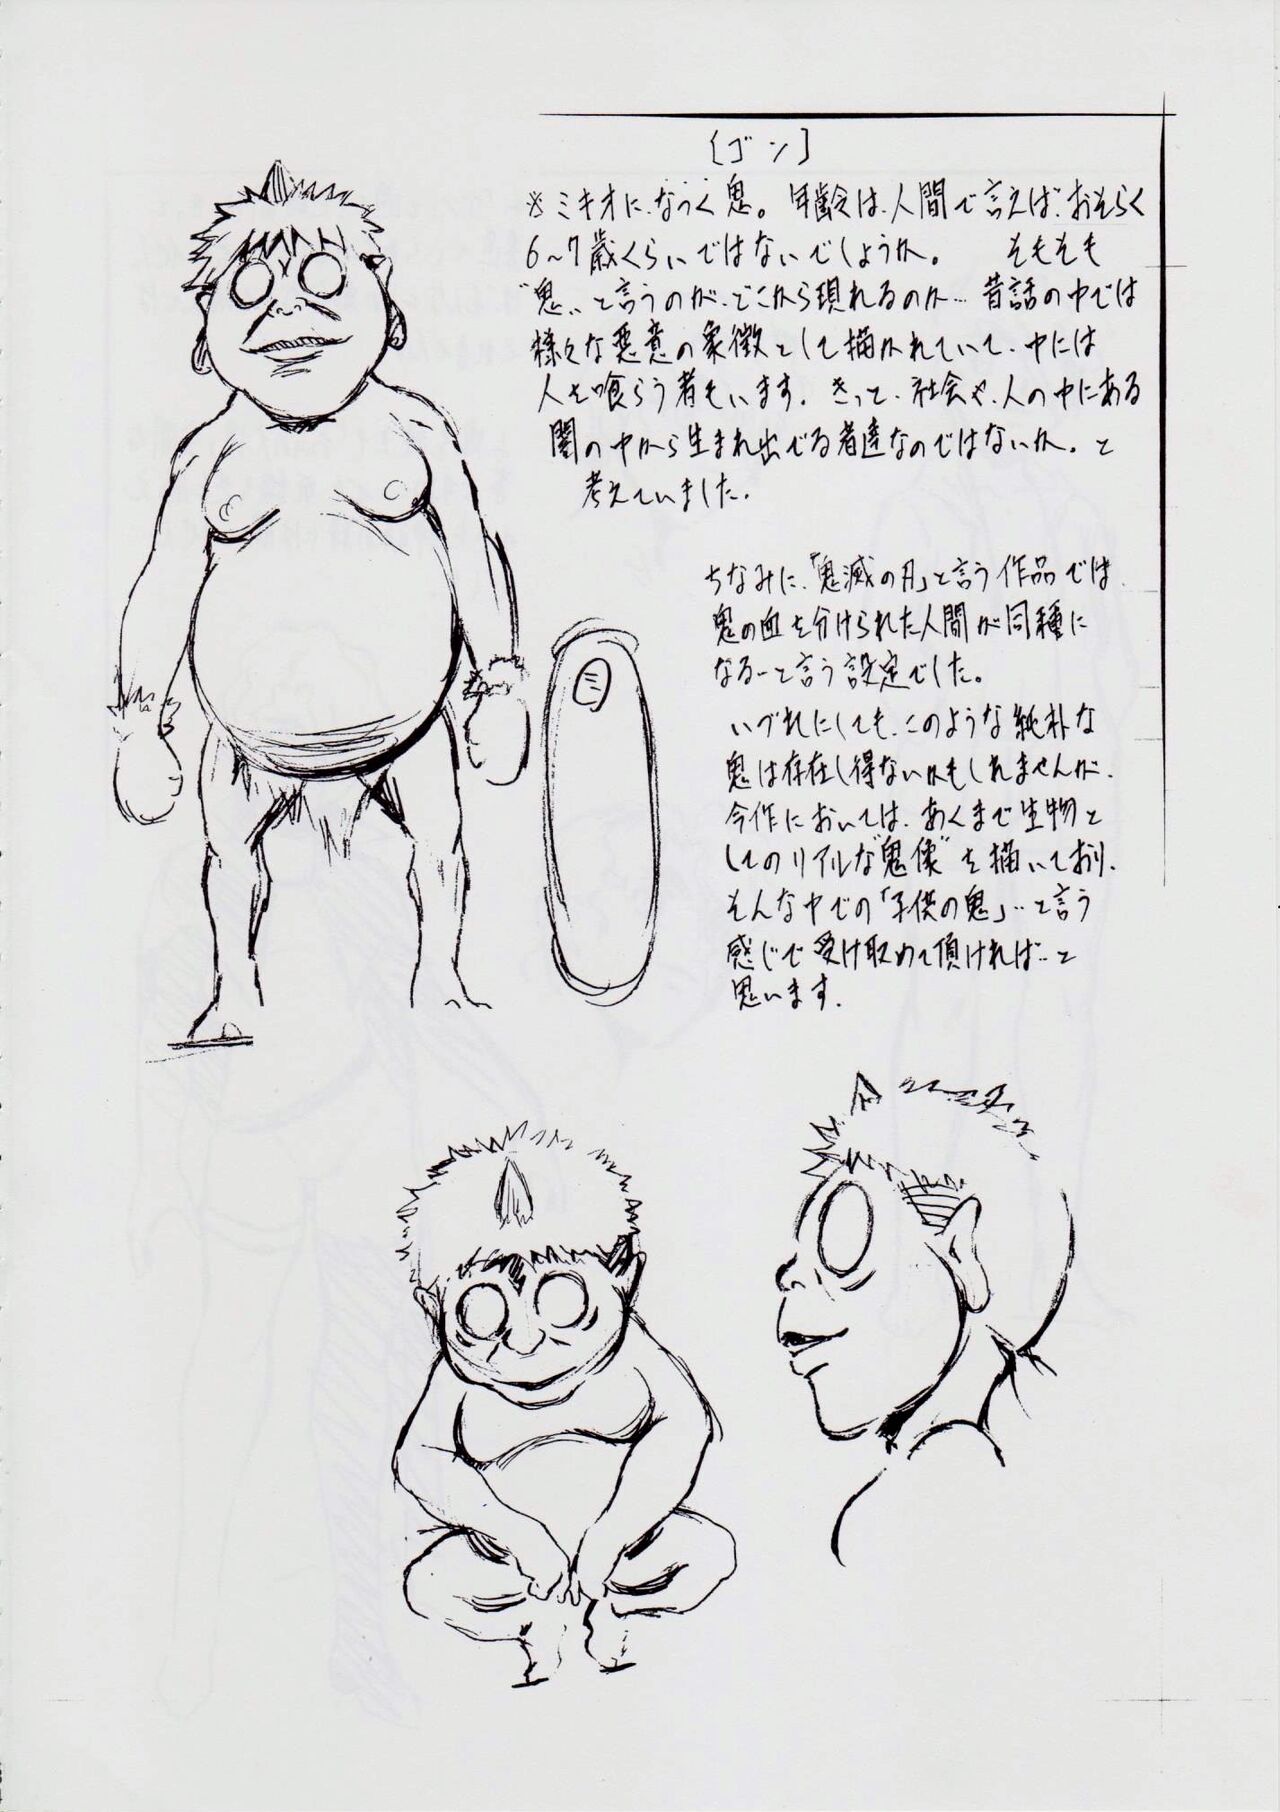 [ゴン]
※ミキオに、なつく鬼。年齢は、人間で言えば、おそらく
6〜7歳くらいではないでしょうか。 そもそも
"鬼"と言うのが、どこから現れるのか…昔話の中では
様々な悪意の象徴として描かれていて、中には
人を喰らう者もいます。きっと、社会や、人の中にある
闇の中から生まれ出でる者達なのではないか。と
考えていました。
ちなみに、「鬼滅の刃」と言う作品では、
鬼の血を分けられた人間が同種に
なる…と言う設定でした。
いづれにしても、このような純朴な
鬼は存在し得ないかもしれませんが、
今作においては、あくまで生物と
してのリアルな"鬼像"を描いており、
そんな中での「子供の鬼」…と言う
感じで受け取めて頂ければ…と
思います。
ミ